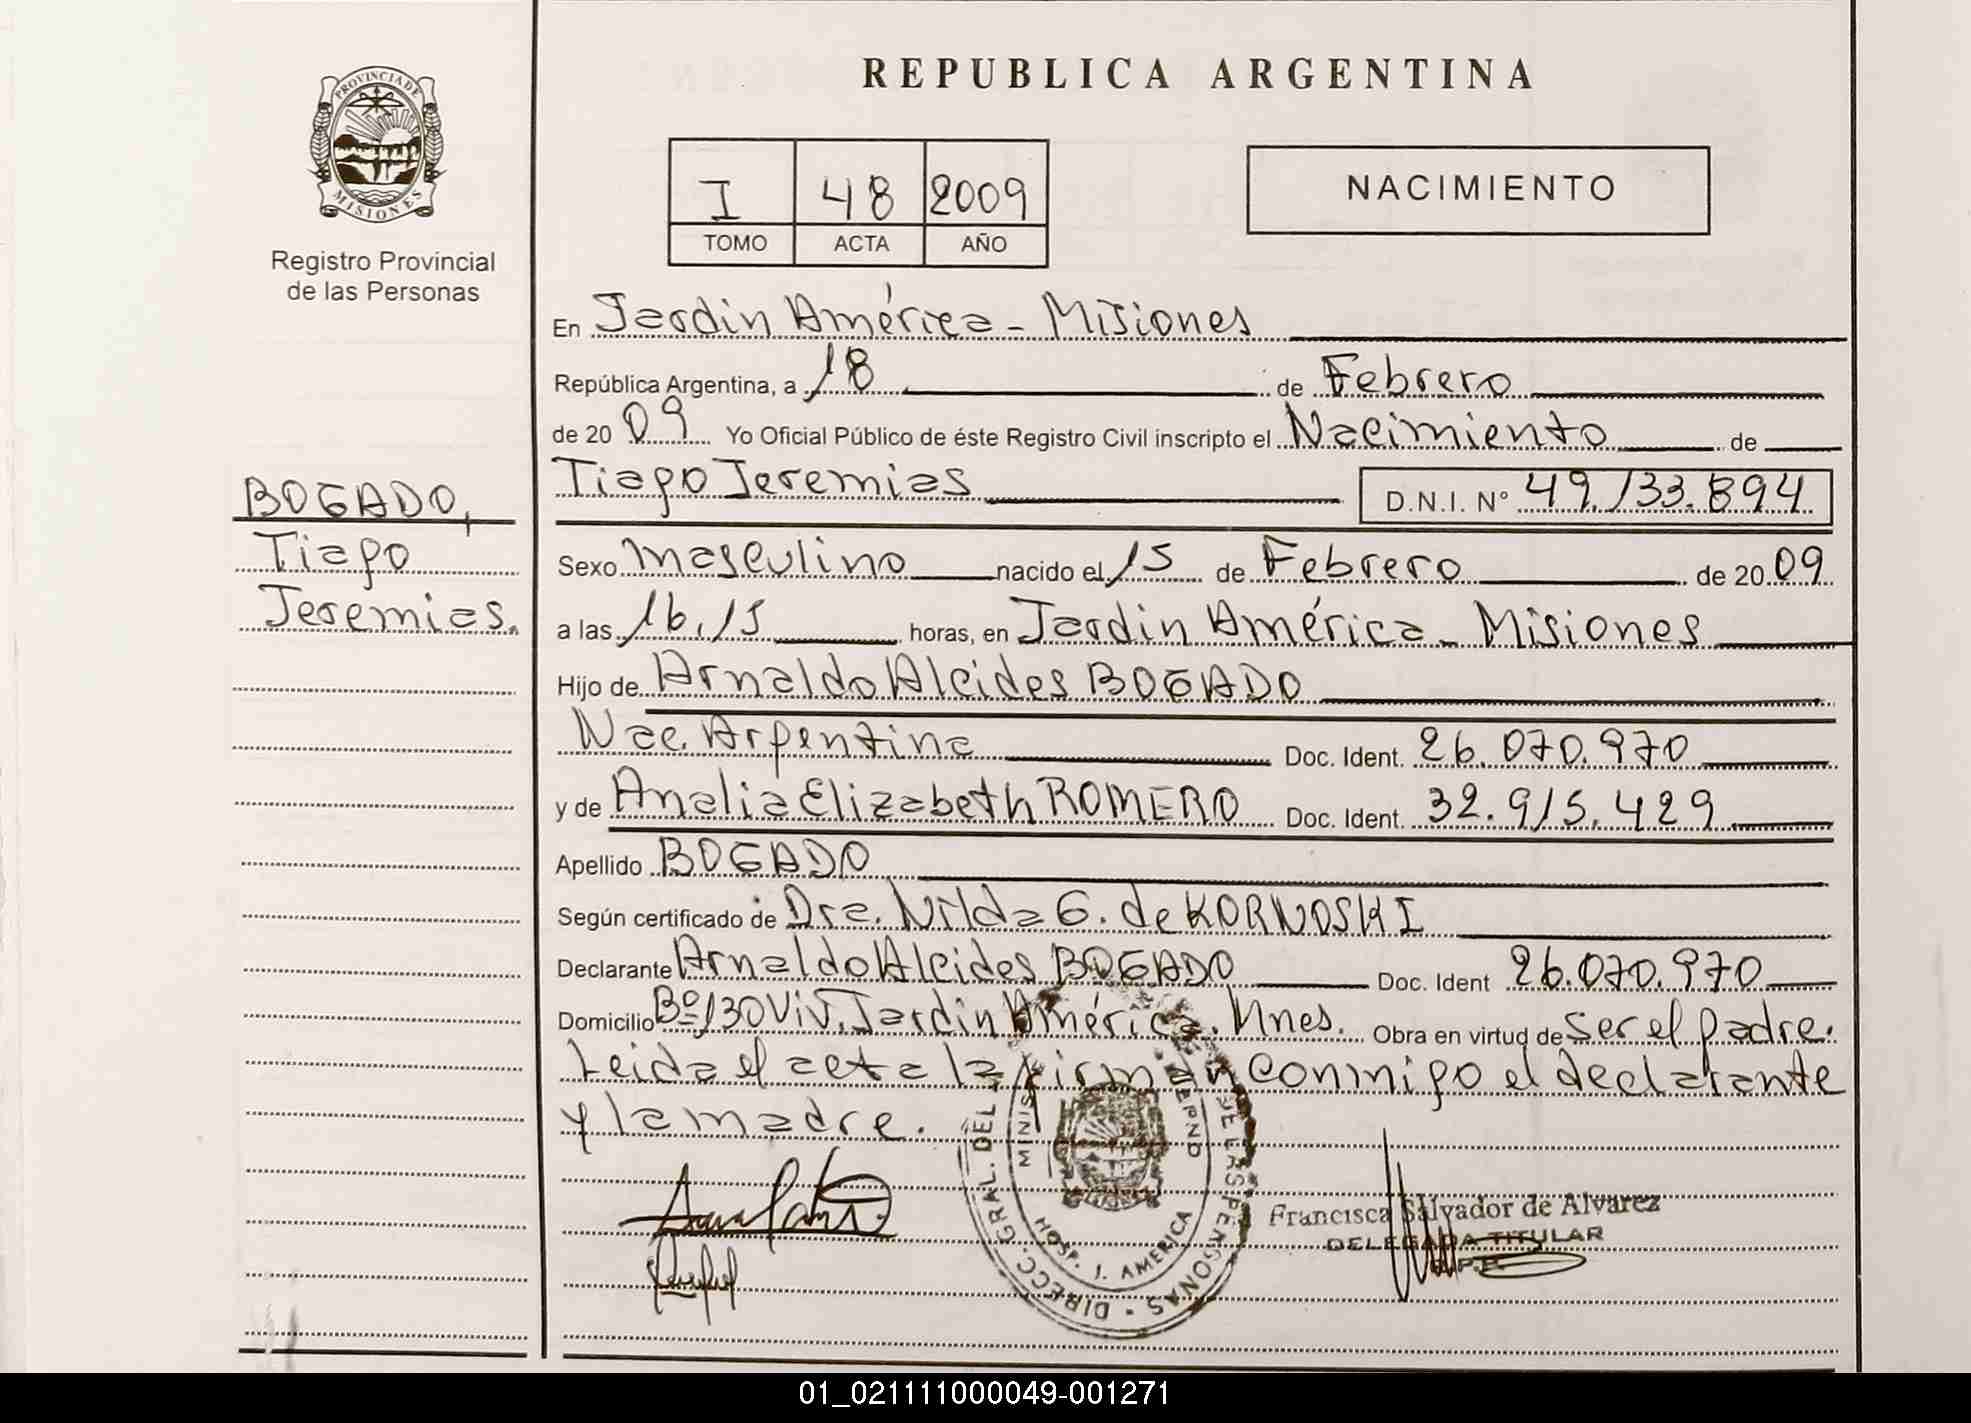 PROVINCIA DE
MISIONES
Registro Provincial
de las Personas
BOGADO,
Tiago
Jeremias.
REPUBLICA ARGENTINA
I 48 2009
TOMO ACTA AÑO
NACIMIENTO
En Jardin América - Misiones
República Argentina, a 18 de Febrero
de 2009 Yo Oficial Público de éste Registro Civil inscripto el Nacimiento de
Tiago Jeremias D.N.I. N° 49.133.894
Sexo Masculino nacido el 15 de Febrero de 2009
a las 16,15 horas, en Jardin América - Misiones
Hijo de Arnaldo Alcides BOGADO
Nac. Argentina Doc. Ident. 26.070.970
y de Analia Elizabeth ROMERO Doc. Ident. 32.915.429
Apellido BOGADO
Según certificado de Dra. Nilda G. de KORNOSKI
Declarante Arnaldo Alcides BOGADO Doc. Ident 26.070.970
Domicilio Bº 130 Viv. Jardin América. Mnes. Obra en virtud de ser el padre.
Leida el acta la firman conmigo el declarante
y la madre.
DIRECC. GRAL. DEL DE LAS PERSONAS
HOSP. J. AMERICA
Francisca Salvador de Alvarez
DELEGADA TITULAR
01_021111000049-001271